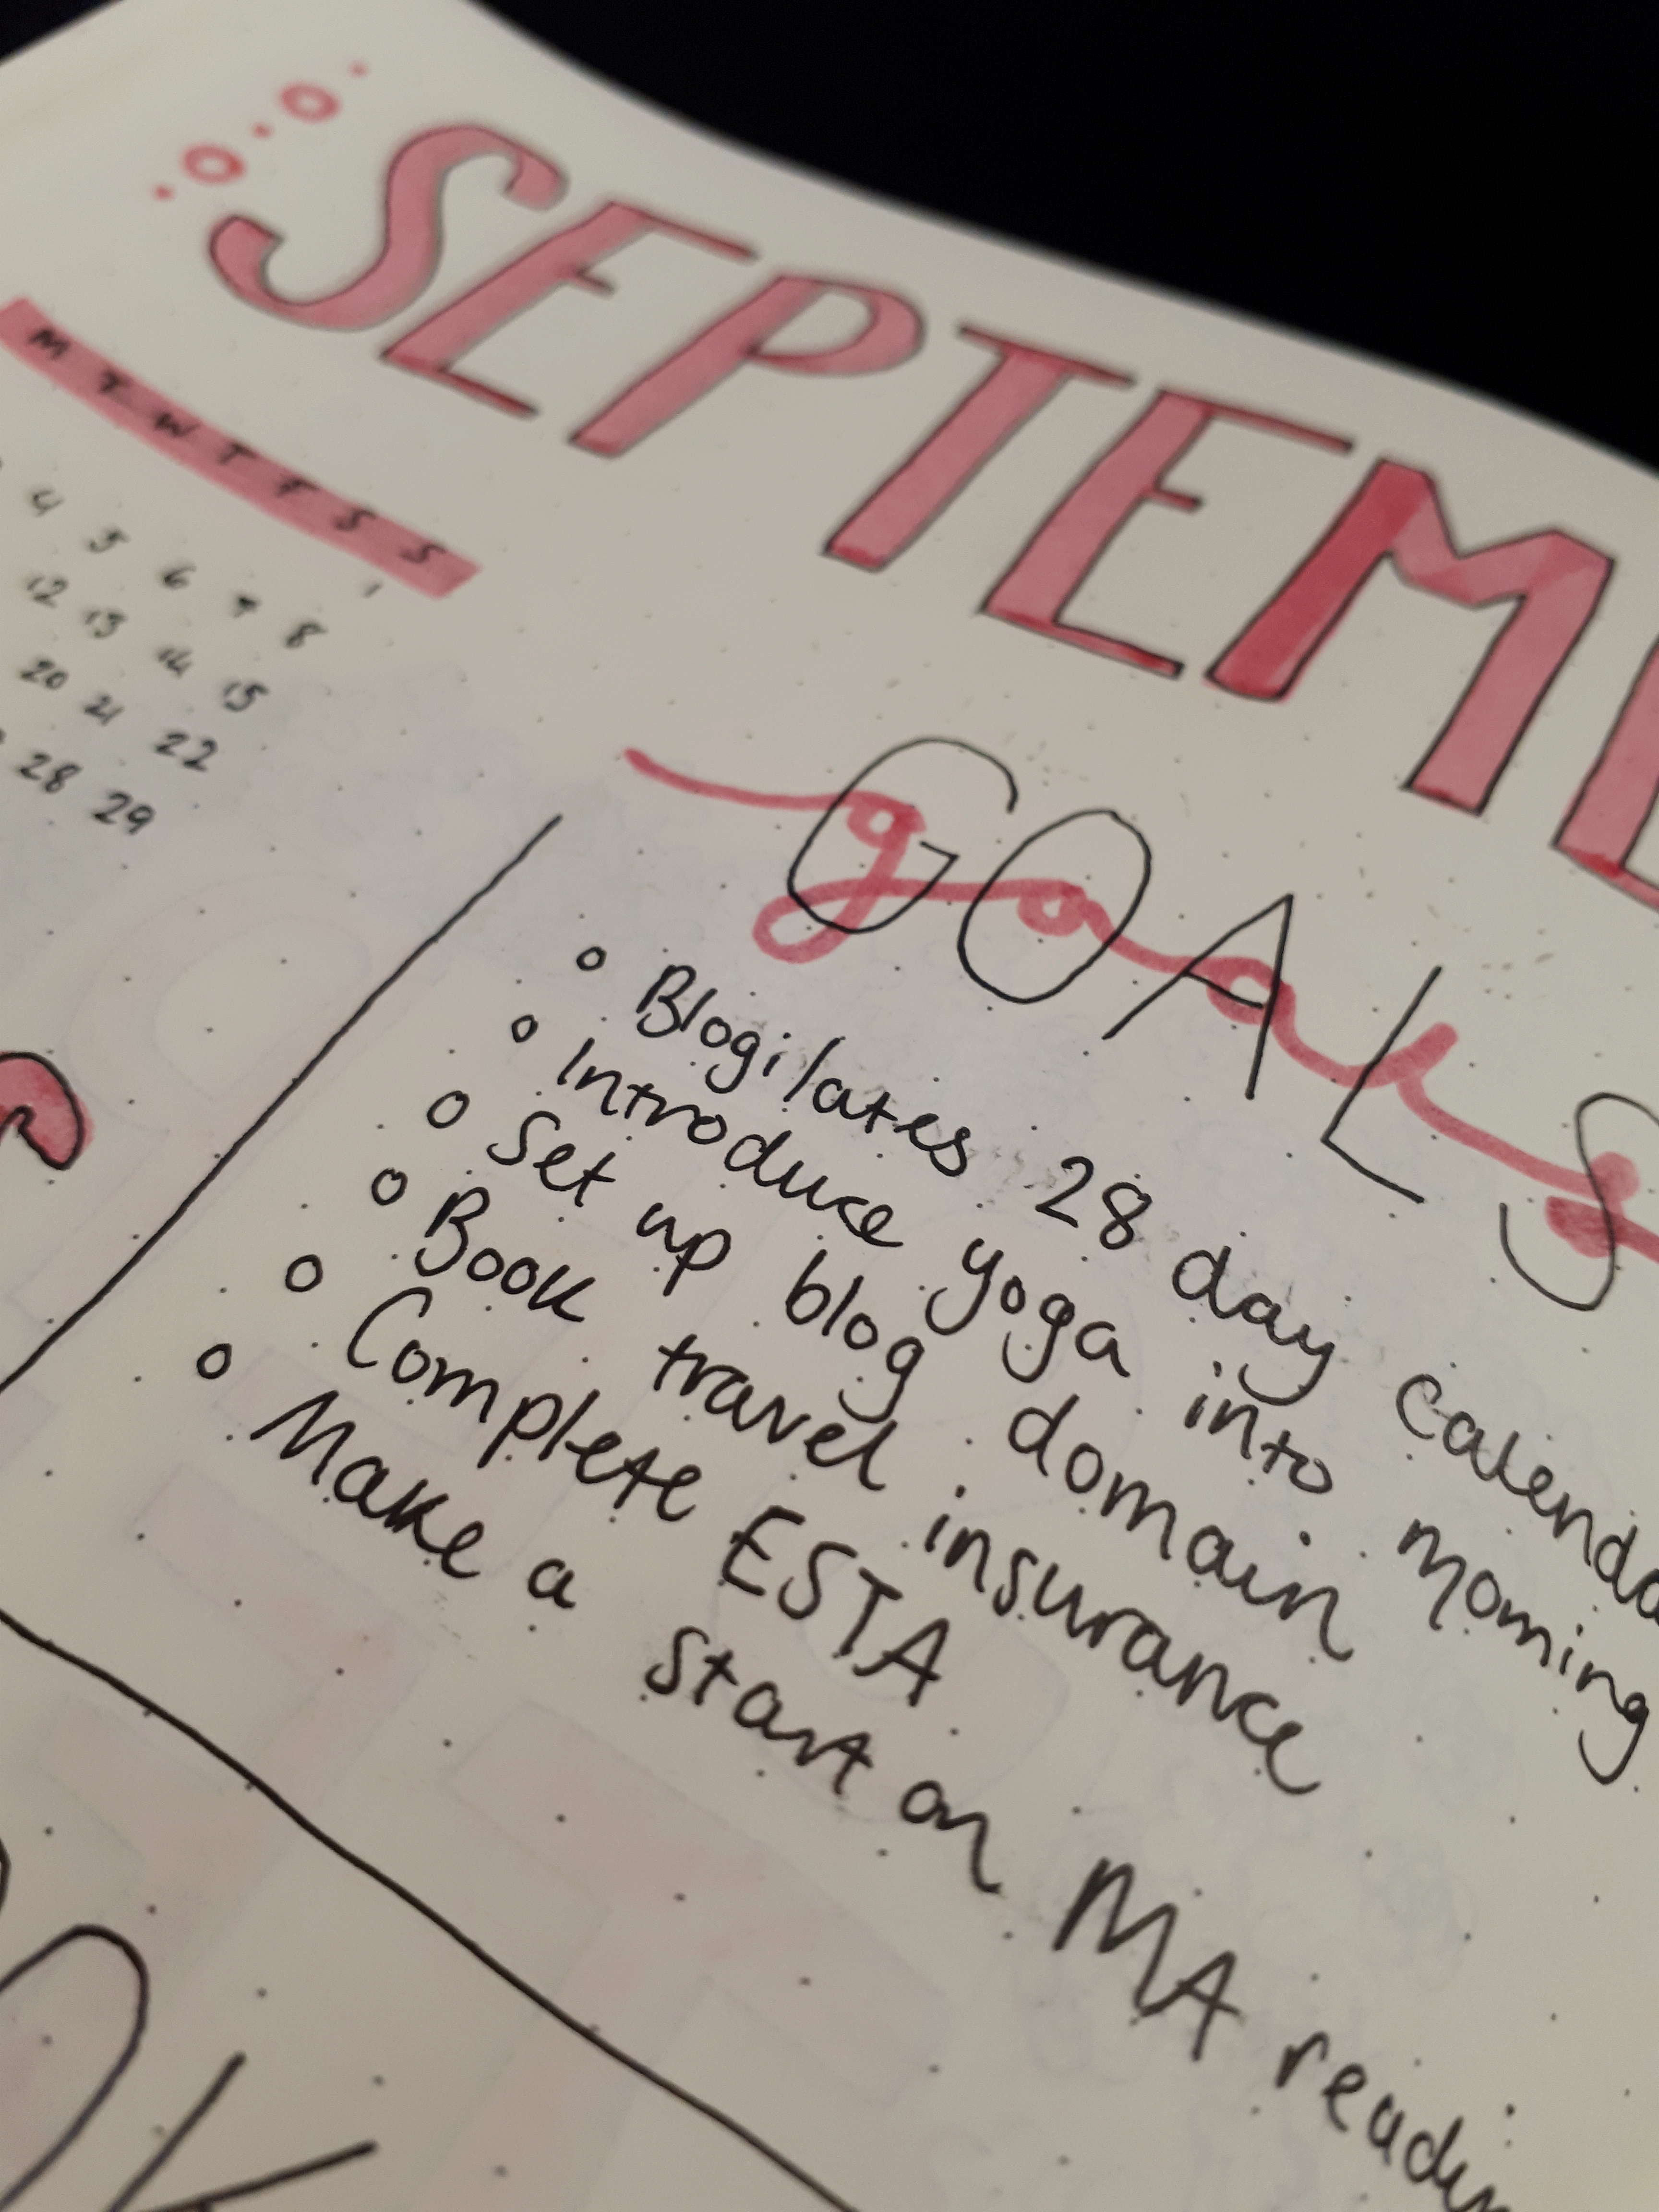 SEPTEM
M T W T F S S
1
4 5 6 7 8
12 13 14 15
20 21 22
28 29
GOALS
goals
Blogilates 28 day calenda
Introduce yoga into morning
Set up blog domain
Book travel insurance
Complete ESTA
Make a start on MA readin